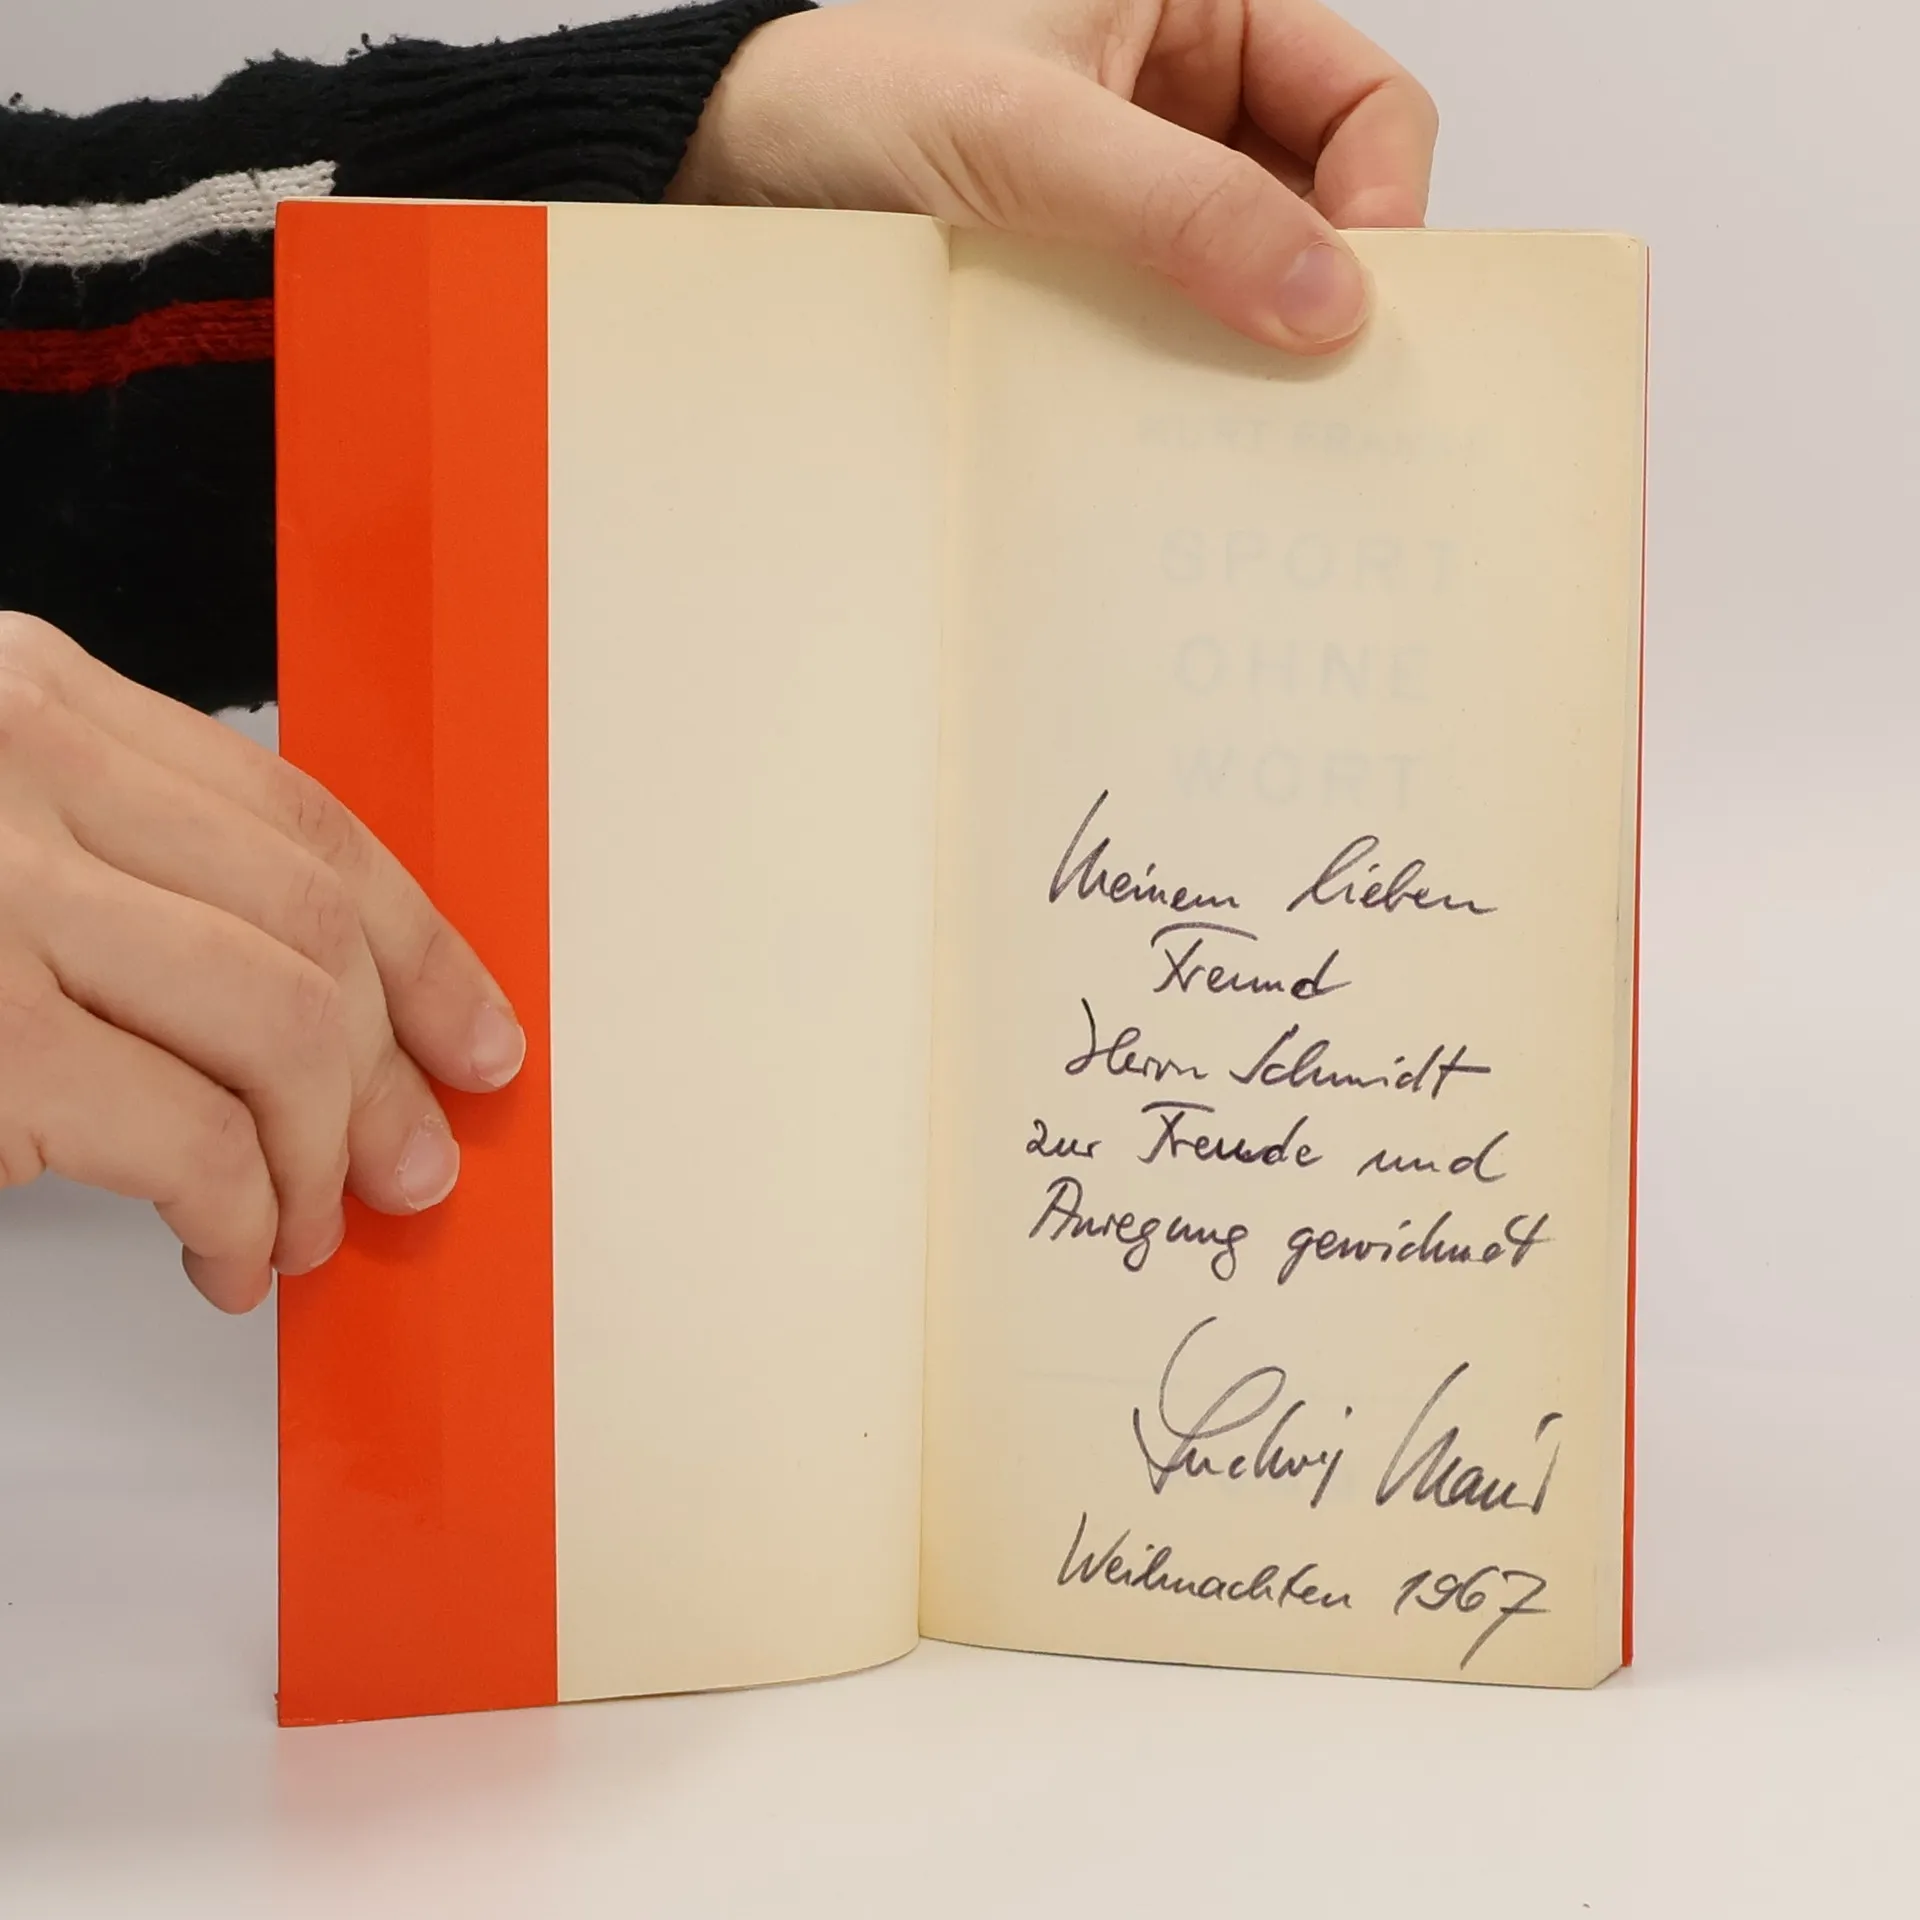 SPORT
OHNE
WORT
Meinem lieben
Freund
Herrn Schmidt
zur Freude und
Anregung gewidmet
Ludwig
Weihnachten 1967